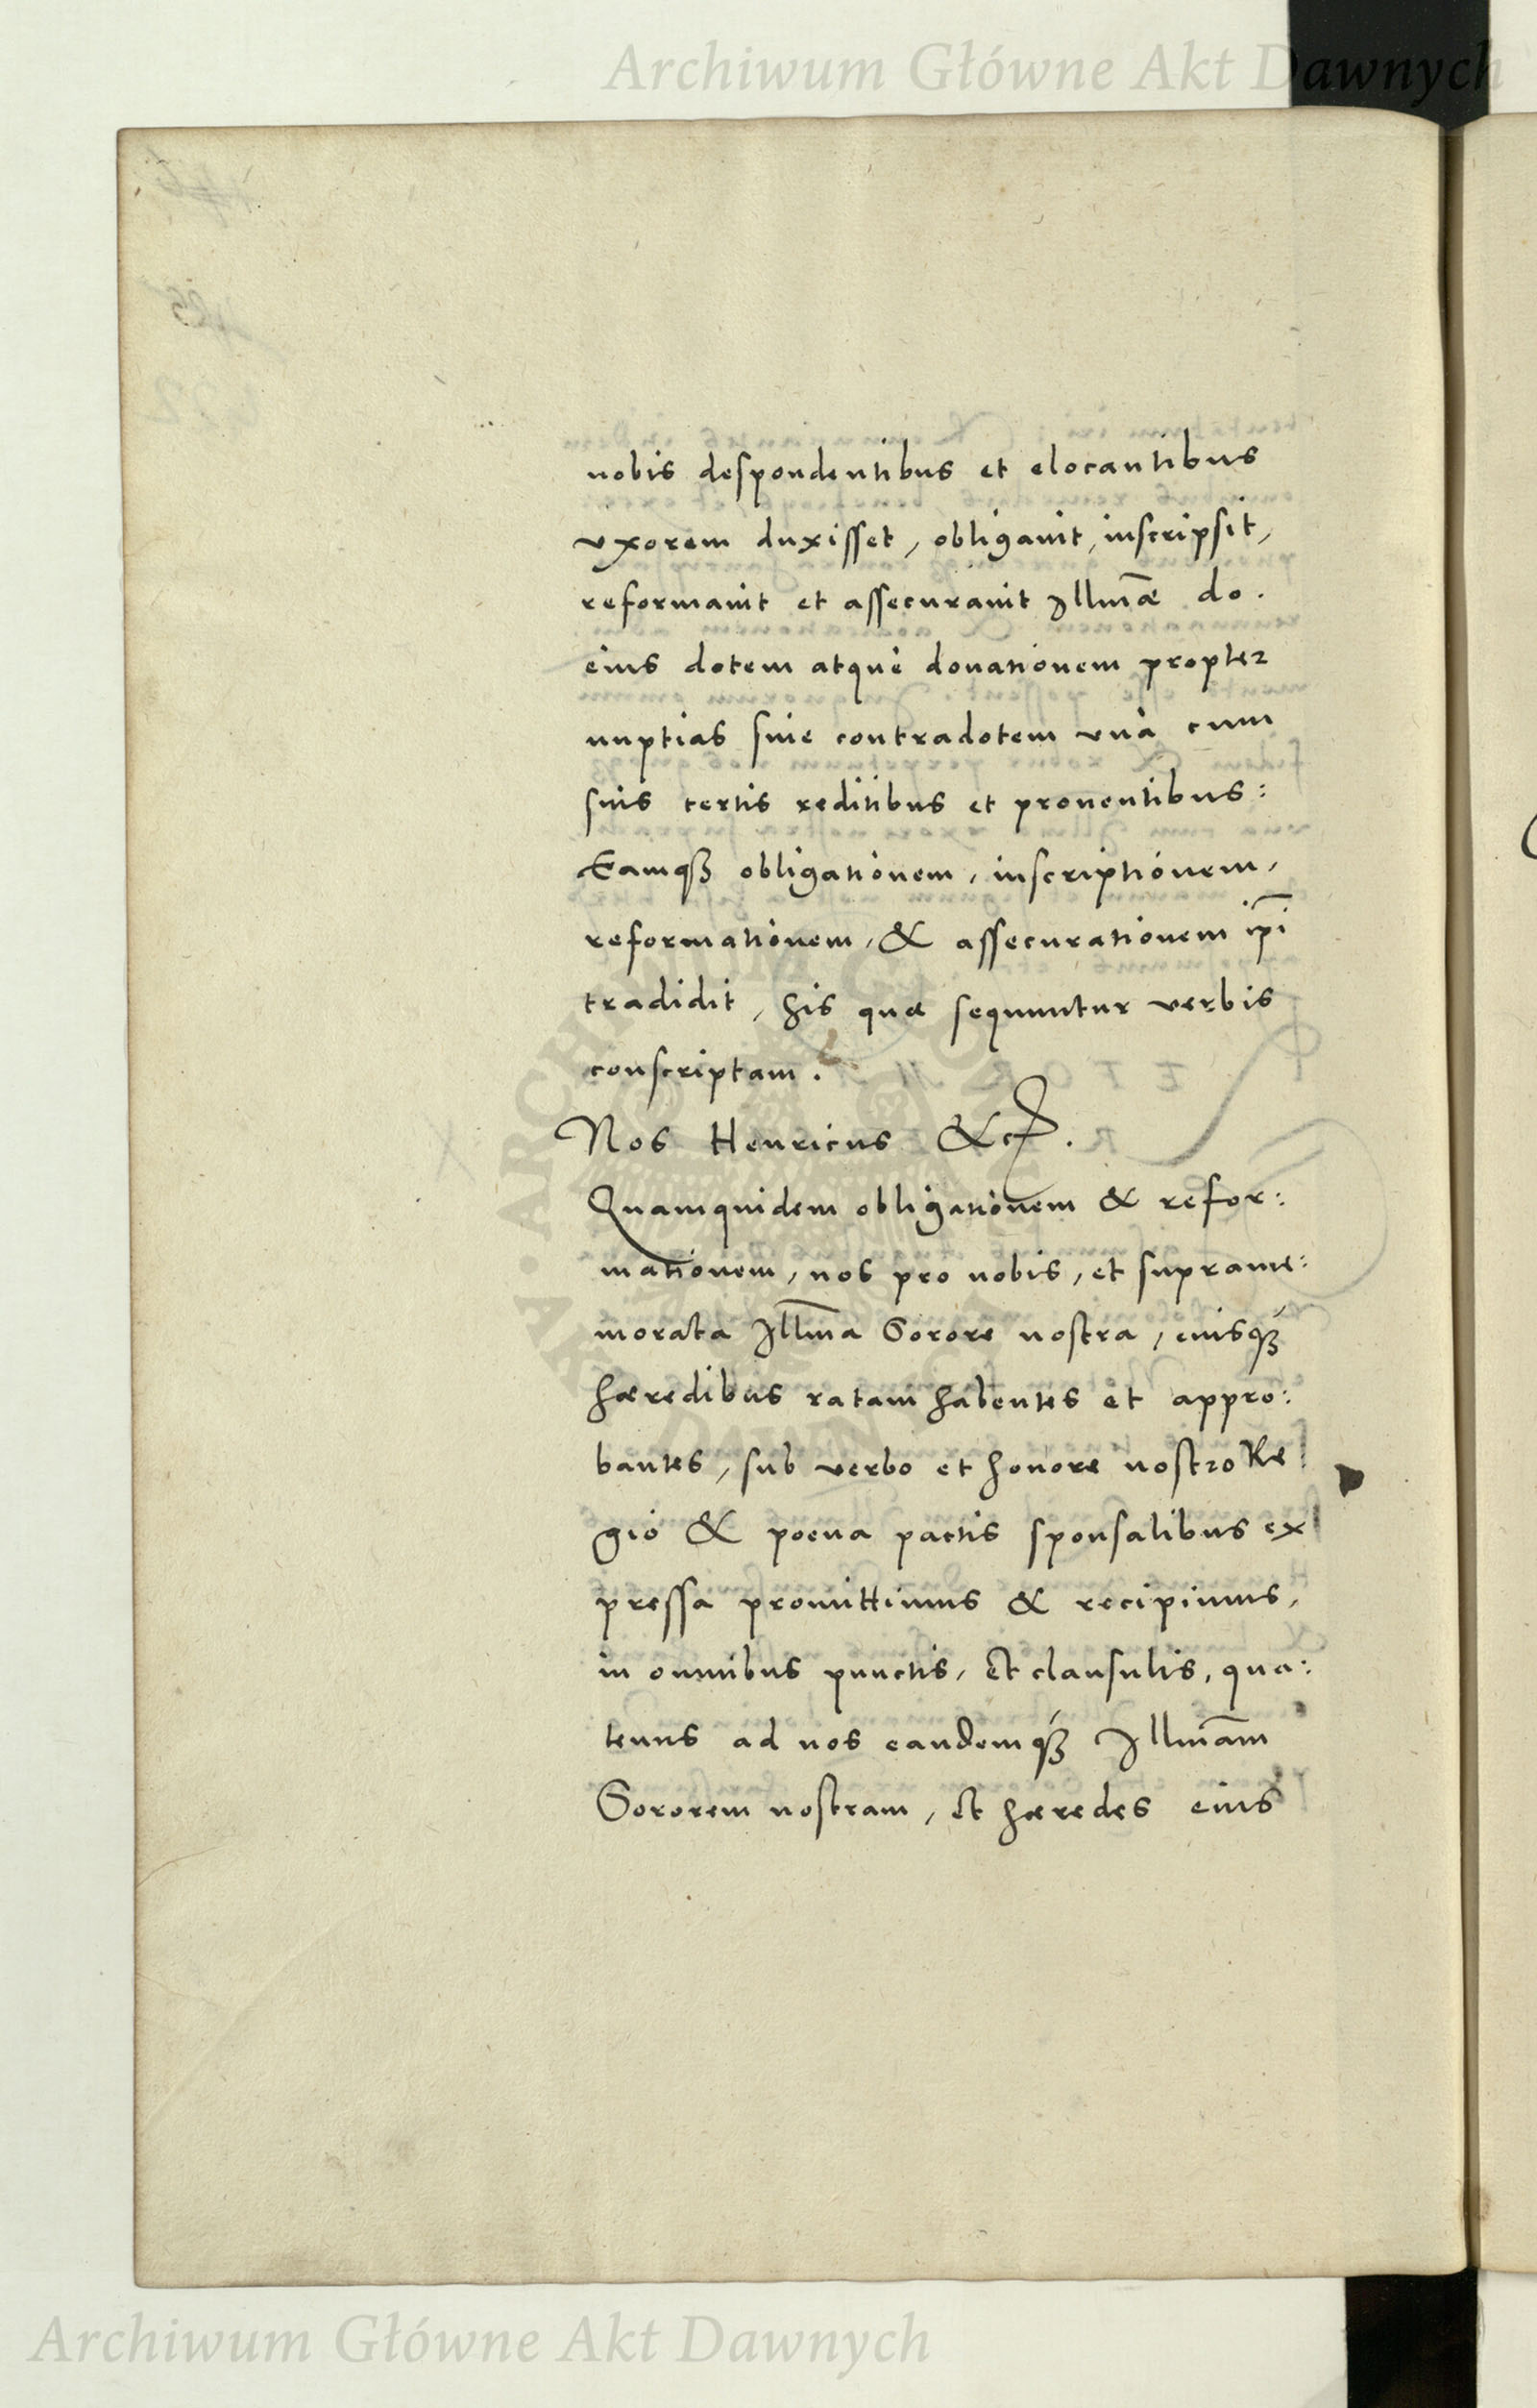 Archiwum Główne Akt Dawnych
nobis despondentibus et elocantibus
vxorem duxisset, obligauit, inscripsit,
reformauit et assecurauit Illmae do.
eius dotem atque donationem propter
nuptias siue contradotem vna cum
suis certis reditibus et prouentibus:
Eamqȝ obligationem, inscriptionem,
reformationem, & assecurationem ipi
tradidit, his quae sequuntur verbis
conscriptam.
Nos Henricus &c.
Quamquidem obligationem & refor:
mationem, nos pro nobis, et suprame:
morata Illma Sorore nostra, eiusqȝ
haeredibus ratam habentes et appro:
bantes, sub verbo et honore nostro Re
gio & poena pactis sponsalibus ex
pressa promittimus & recipimus,
in omnibus punctis, et clausulis, qua:
tenus ad nos eandemqȝ Illmam
Sororem nostram, et haeredes eius
Archiwum Główne Akt Dawnych